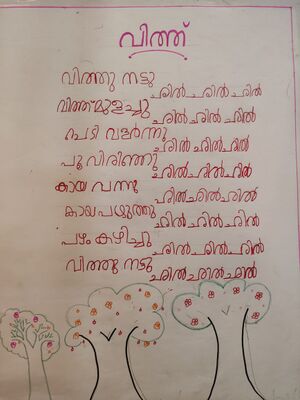 വിത്ത്
വിത്തു നട്ടു ഛിൽ ഛിൽ ഛിൽ
വിത്ത് മുളച്ചു ഛിൽ ഛിൽ ഛിൽ
ചെടി വളർന്നു ഛിൽ ഛിൽ ഛിൽ
പൂ വിരിഞ്ഞു ഛിൽ ഛിൽ ഛിൽ
കായ വന്നു ഛിൽ ഛിൽ ഛിൽ
കായ പഴുത്തു ഛിൽ ഛിൽ ഛിൽ
പഴം കഴിച്ചു ഛിൽ ഛിൽ ഛിൽ
വിത്തു നട്ടു ഛിൽ ഛിൽ ഛിൽ